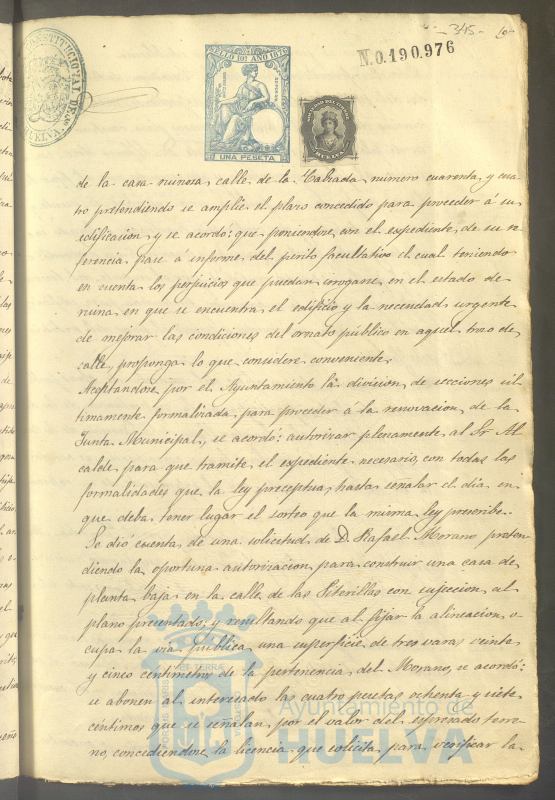 345
CONSTITUCIONAL DE
HUELVA
SELLO 10º AÑO 187
UNA PESETA
HUELVA
N.0.190.976
de la casa ruinosa, calle de la Calzada, numero cuarenta, y cua
tro pretendiendo se amplie el plazo concedido para proceder á su
edificacion, y se acordó: que poniendose, con el expediente, de su re
ferencia, pase á informe, del perito facultativo el cual teniendo
en cuenta los perjuicios que puedan irrogarse, en el estado de
ruina, en que se encuentra, el edificio y la necesidad urgente
de mejorar las condiciones del ornato público en aquel trozo de,
calle, proponga lo que considere conveniente.
Aceptandose por el Ayuntamiento la division, de secciones úl
timamente formalizada, para proceder á la renovacion, de la
Junta Municipal, se acordó: autorizar plenamente al Sr Al
calde para que tramite, el expediente necesario, con todas las
formalidades que la ley preceptua, hasta señalar el dia en
que deba tener lugar el sorteo que la misma ley prescribe.
Se dió cuenta de una solicitud de D. Rafael Morano preten
diendo la oportuna autorizacion para construir una casa de
planta baja en la calle de las Piterillas con sujeccion al
plano presentado; y resultando que al fijar la alineacion, o
cupa la via pública una superficie, de tres varas veinte
y cinco centimetros de la pertenencia, del Morano, se acordó:
se abonen al interesado las cuatro pesetas ochenta y siete
centimos que se señalan, por el valor del espresado terre
no, concediendose la licencia que solicita para verificar la
Ayuntamiento de
HUELVA